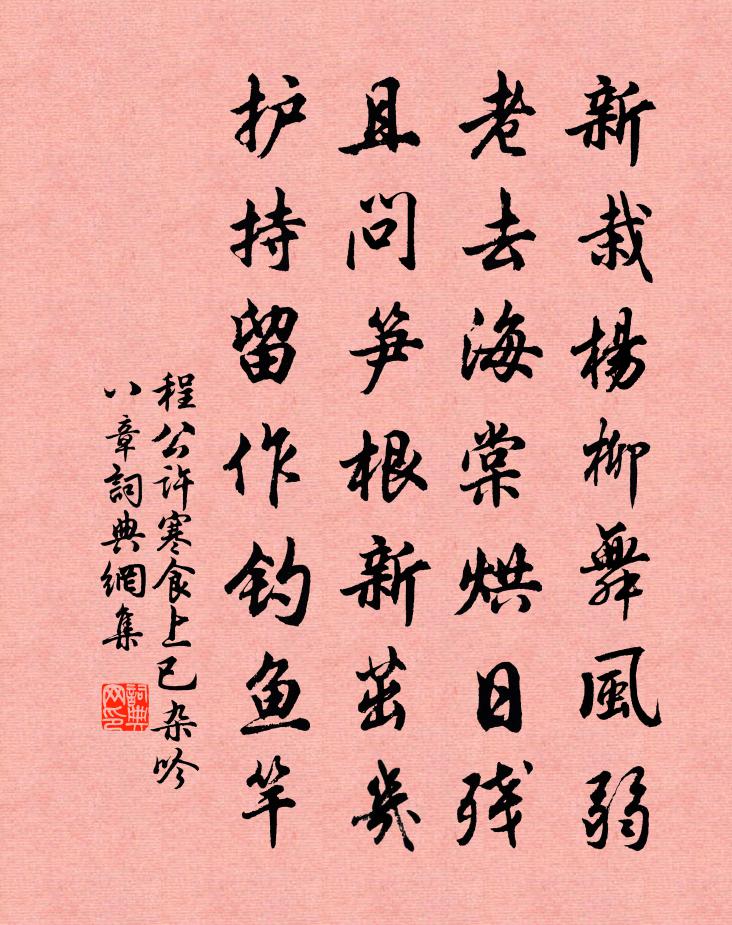 新栽楊柳舞風弱
老去海棠烘日残
且问笋根新茁幾
护持留作钓鱼竿
程公许寒食上巳杂吟
八章詞典網集
詞典网印